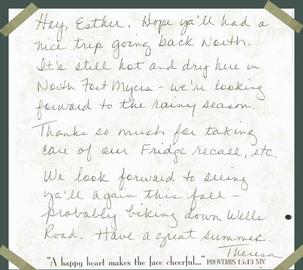 Hey, Esther. Hope ya'll had a
nice trip going back North.
It's still hot and dry here in
North Fort Myers - we're looking
forward to the rainy season.
Thanks so much for taking
care of our Fridge recall, etc.
We look forward to seeing
ya'll again this fall -
probably biking down Wells
Road. Have a great summer.
Theresa
"A happy heart makes the face cheerful..." PROVERBS 15:13 NIV